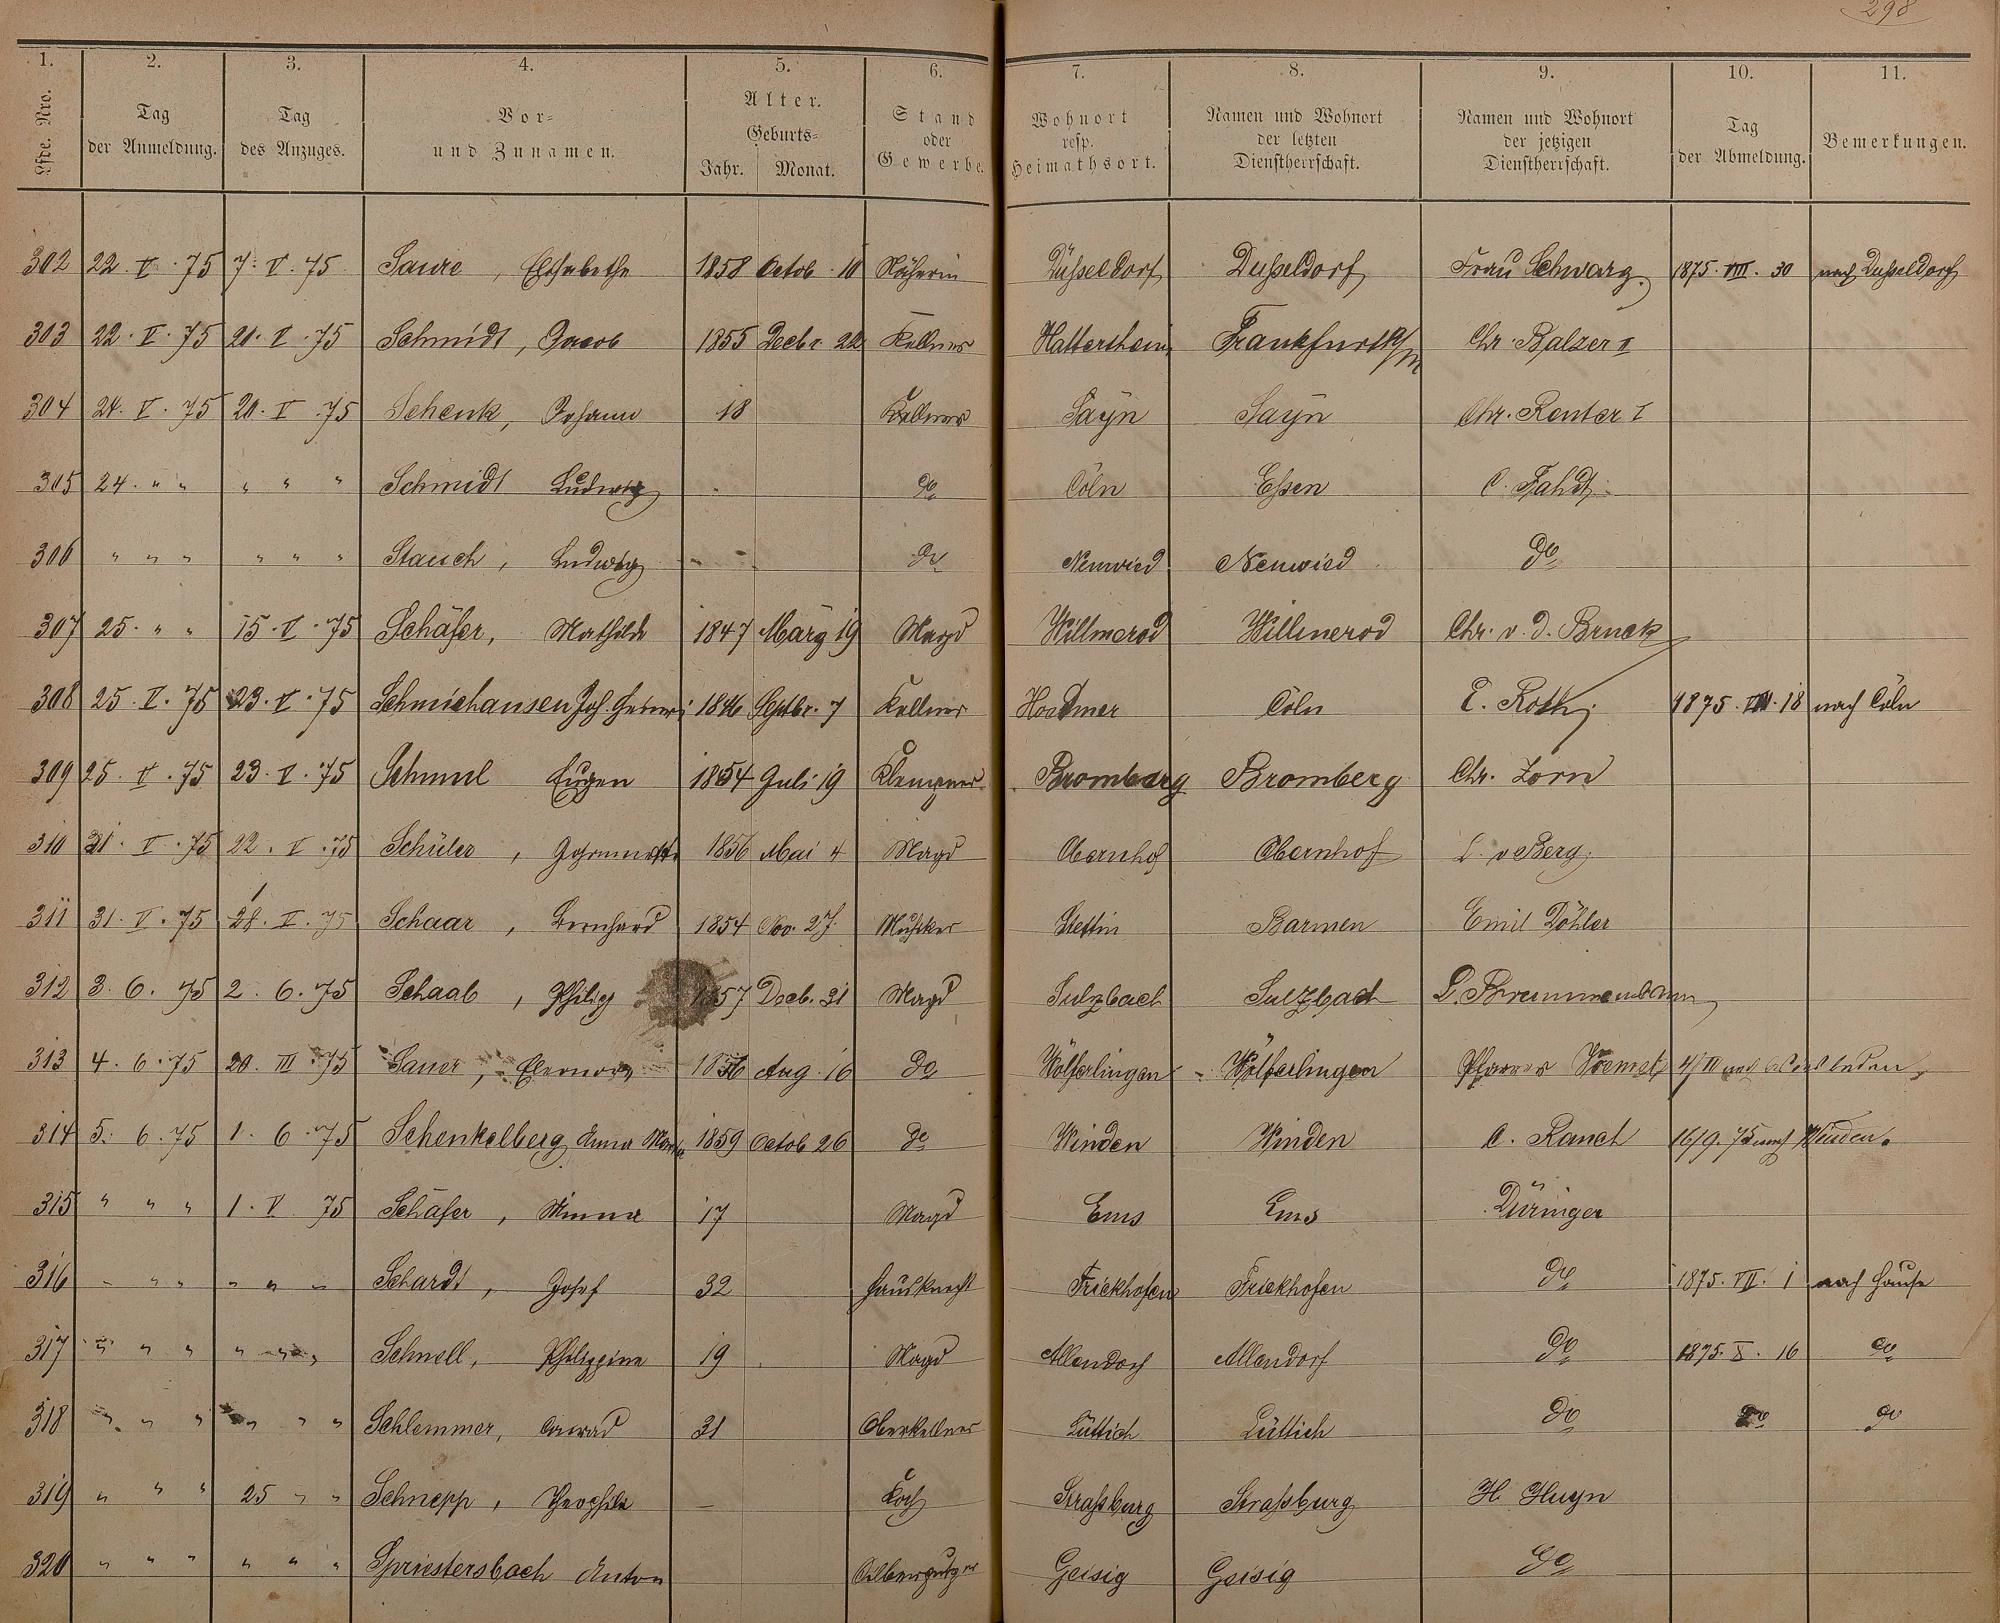 298
1. 2. 3. 4. 5. 6. 7. 8. 9. 10. 11.
Lfde. Nro. Tag der Anmeldung. Tag des Anzuges. Vor- und Zunamen. Alter. Geburts- Jahr. Monat. Stand oder Gewerbe. Wohnort resp. Heimathsort. Namen und Wohnort der letzten Dienstherrschaft. Namen und Wohnort der jetzigen Dienstherrschaft. Tag der Abmeldung. Bemerkungen.
302 22. V. 75 7. V. 75 Saure, Elisabethe 1858 Octob. 10 Näherin Düsseldorf Dusseldorf Frau Schwarz 1875. VIII. 30 nach Dusseldorf
303 22. V. 75 21. V. 75 Schmidt, Jacob 1855 Decbr. 22 Kellner Hattersheim Frankfurt a/m Chr. Balzer II
304 24. V. 75 20. V. 75 Schenk, Johann 18 Kellner Sayn Sayn Chr. Reuter I
305 24. " " " " " Schmidt Ludwig - do Cöln Essen C. Fahdt
306 " " " " " " Stauch, Ludwig - - do Neuwied Neuwied do
307 25. " " 15. V. 75 Schäfer, Mathilde 1847 März 19 Magd Willmerod Willmerod Chr. v. d. Bruck
308 25. V. 75 23. V. 75 Schmichausen Joh. Heinr. 1846 Septbr. 7 Kellner Hadamar Cöln E. Roth 1875. VIII. 18 nach Cöln
309 25. V. 75 23. V. 75 Eugen 1854 Juli 19 Klempner Bromberg Bromberg Chr. Zorn
310 31. V. 75 22. V. 75 Schüler, 1856 Mai 4 Magd Obernhof Obernhof L. v Berg
311 31. V. 75 28. V. 75 Schaar, Bernhard 1854 Nov. 27. Musiker Stettin Barmen Emil Döhler
312 3. 6. 75 2. 6. 75 Schaab, Philip 1857 Decb. 31 Magd Sulzbach Sulzbach
313 4. 6. 75 20. III. 75 Sauer, Eleonore 1856 Aug. 16 do Wölferlingen Wölferlingen Pfarrer nach
314 5. 6. 75 1. 6. 75 Schenkelberg Anna Maria 1859 Octob 26 do Winden Winden C. 16/9. 75 nach Winden.
315 " " " 1. V. 75 Schäfer, Minna 17 Magd Ems Ems Düringer
316 " " " " " " Schardt, Josef 32 Hausknecht Frickhofen Frickhofen do 1875. VII. 1 nach Hause
317 " " " " " " Schnell, Philippine 19 Magd Allendorf Allendorf do 1875. X. 16 do
318 " " " " " " Schlemmer, Conrad 31 Oberkellner Lüttich Lüttich do do do
319 " " " 25 " " Schnepp, Theophile - Koch Strassburg Strassburg H. Huyn
320 " " " " " " Spriestersbach Anton Silberputzer Geisig Geisig do